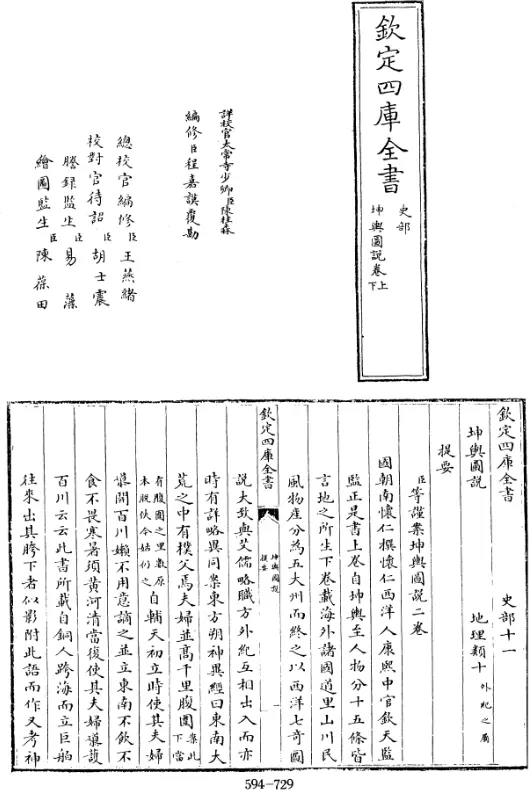 欽定四庫全書
史部
坤輿圖說卷上下
詳校官太常寺少卿臣陳桂森
編修臣程嘉謨覆勘
總校官編修臣王燕緒
校對官待詔臣胡士震
謄錄監生臣易藻
繪圖監生臣陳葆田
欽定四庫全書 史部十一
坤輿圖說 地理類十外紀之屬
提要
臣等謹案坤輿圖說二卷
國朝南懷仁撰懷仁西洋人康熙中官欽天監
監正是書上卷自坤輿至人物分十五條皆
言地之所生下卷載海外諸國道里山川民
風物產分為五大州而終之以西洋七奇圖
欽定四庫全書
坤輿圖說
提要
一
說大致與艾儒略職方外紀互相出入而亦
時有詳略異同案東方朔神異經曰東南大
荒之中有樸父焉夫婦並高千里腹圍案此下當
有腹圍之里數原本脫佚今姑仍之自輔天初立時使其夫婦
導開百川嬾不用意謫之並立東南不飲不
食不畏寒暑須黃河清當復使其夫婦導護
百川云云此書所載有銅人跨海而立巨舶
往來出其胯下者似影附此語而作又考神
594-729